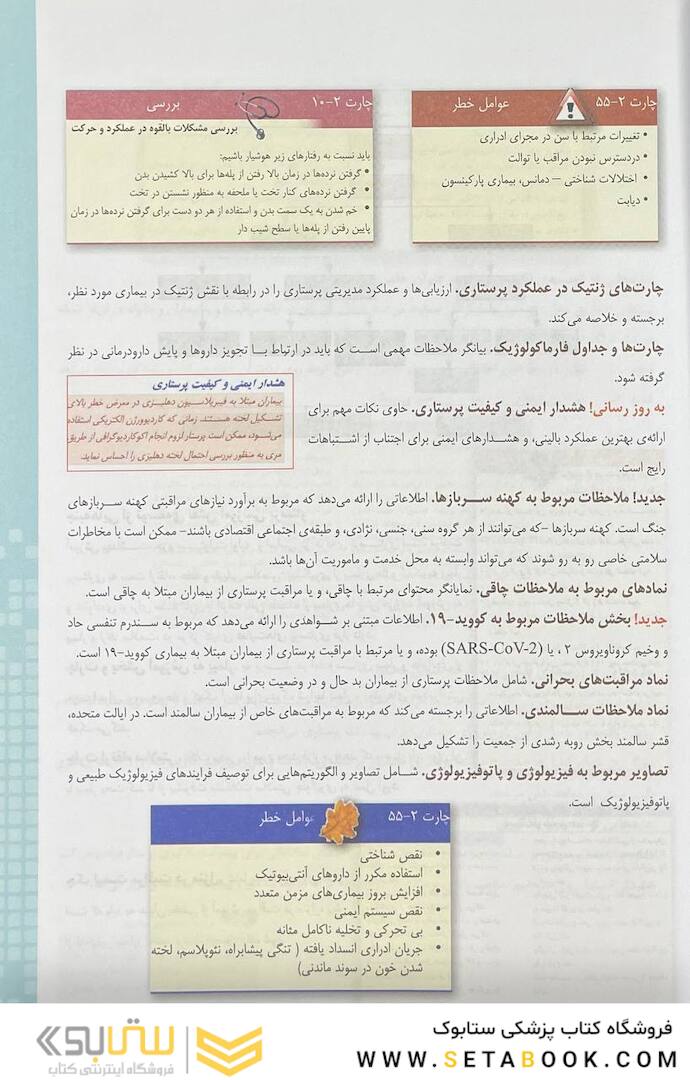 چارت ۲-۵۵ عوامل خطر
• تغییرات مرتبط با سن در مجرای ادراری
• دردسترس نبودن مراقب یا توالت
• اختلالات شناختی – دمانس، بیماری پارکینسون
• دیابت
چارت ۲-۱۰ بررسی
بررسی مشکلات بالقوه در عملکرد و حرکت
باید نسبت به رفتارهای زیر هوشیار باشیم:
• گرفتن نرده‌ها در زمان بالا رفتن از پله‌ها برای بالا کشیدن بدن
• گرفتن نرده‌های کنار تخت یا ملحفه به منظور نشستن در تخت
• خم شدن به یک سمت بدن و استفاده از هر دو دست برای گرفتن نرده‌ها در زمان
پایین رفتن از پله‌ها یا سطح شیب دار
چارت‌های ژنتیک در عملکرد پرستاری. ارزیابی‌ها و عملکرد مدیریتی پرستاری را در رابطه با نقش ژنتیک در بیماری مورد نظر،
برجسته و خلاصه می‌کند.
چارت‌ها و جداول فارماکولوژیک. بیانگر ملاحظات مهمی است که باید در ارتباط با تجویز داروها و پایش دارودرمانی در نظر
گرفته شود.
به روز رسانی! هشدار ایمنی و کیفیت پرستاری. حاوی نکات مهم برای
ارائه‌ی بهترین عملکرد بالینی، و هشدارهای ایمنی برای اجتناب از اشتباهات
رایج است.
هشدار ایمنی و کیفیت پرستاری
بیماران مبتلا به فیبریلاسیون دهلیزی در معرض خطر بالای
تشکیل لخته هستند. زمانی که کاردیوورژن الکتریکی استفاده
می‌شود، ممکن است پرستار لزوم انجام اکوکاردیوگرافی از طریق
مری به منظور بررسی احتمال لخته دهلیزی را احساس نماید.
جدید! ملاحظات مربوط به کهنه سربازها. اطلاعاتی را ارائه می‌دهد که مربوط به برآورد نیازهای مراقبتی کهنه سربازهای
جنگ است. کهنه سربازها –که می‌توانند از هر گروه سنی، جنسی، نژادی، و طبقه‌ی اجتماعی اقتصادی باشند– ممکن است با مخاطرات
سلامتی خاصی رو به رو شوند که می‌تواند وابسته به محل خدمت و ماموریت آن‌ها باشد.
نمادهای مربوط به ملاحظات چاقی. نمایانگر محتوای مرتبط با چاقی، و یا مراقبت پرستاری از بیماران مبتلا به چاقی است.
جدید! بخش ملاحظات مربوط به کووید-۱۹. اطلاعات مبتنی بر شواهدی را ارائه می‌دهد که مربوط به سندرم تنفسی حاد
و وخیم کروناویروس ۲، یا (SARS-CoV-2) بوده، و یا مرتبط با مراقبت پرستاری از بیماران مبتلا به بیماری کووید-۱۹ است.
نماد مراقبت‌های بحرانی. شامل ملاحظات پرستاری از بیماران بد حال و در وضعیت بحرانی است.
نماد ملاحظات سالمندی. اطلاعاتی را برجسته می‌کند که مربوط به مراقبت‌های خاص از بیماران سالمند است. در ایالت متحده،
قشر سالمند بخش روبه رشدی از جمعیت را تشکیل می‌دهد.
تصاویر مربوط به فیزیولوژی و پاتوفیزیولوژی. شامل تصاویر و الگوریتم‌هایی برای توصیف فرایندهای فیزیولوژیک طبیعی و
پاتوفیزیولوژیک است.
چارت ۲-۵۵ عوامل خطر
• نقص شناختی
• استفاده مکرر از داروهای آنتی‌بیوتیک
• افزایش بروز بیماری‌های مزمن متعدد
• نقص سیستم ایمنی
• بی تحرکی و تخلیه ناکامل مثانه
• جریان ادراری انسداد یافته ( تنگی پیشابراه، نئوپلاسم، لخته
شدن خون در سوند ماندنی)
فروشگاه کتاب پزشکی ستابوک
WWW.SETABOOK.COM
ستابوک
فروشگاه اینترنتی کتاب